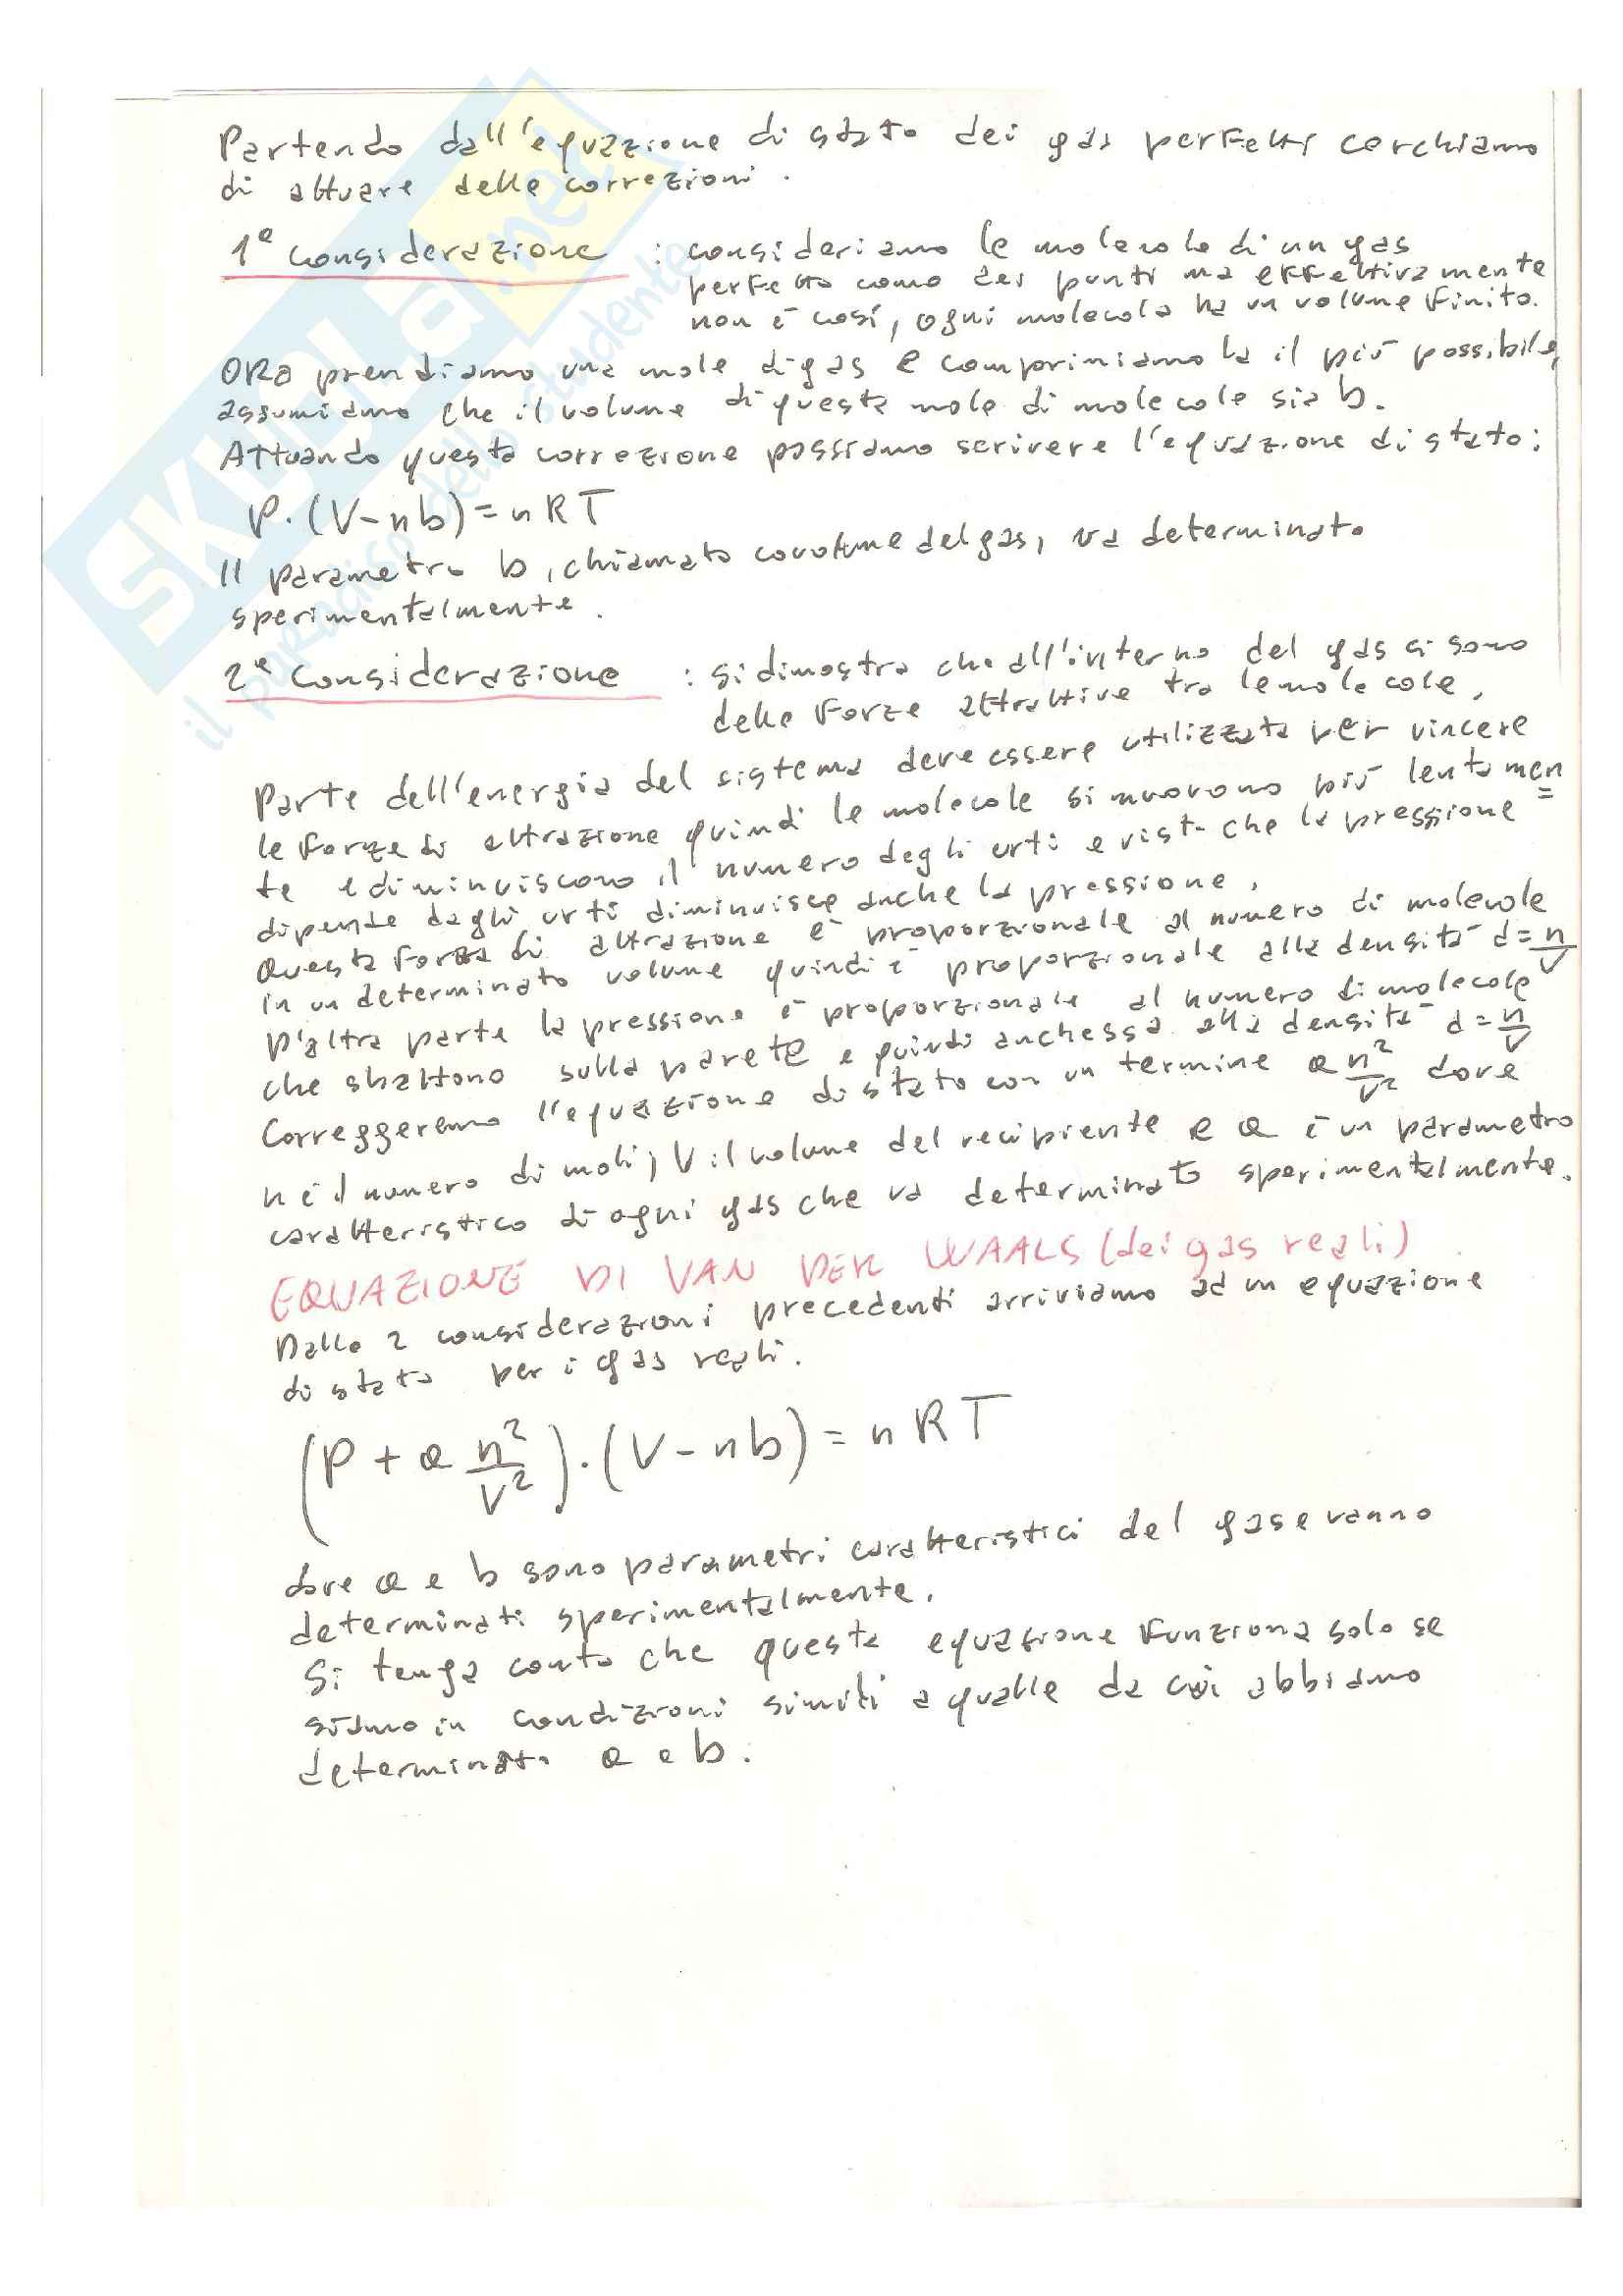 Partendo dall'equazione di stato dei gas perfetti cerchiamo
di attuare delle correzioni.
1ª considerazione : consideriamo le molecole di un gas
perfetto come dei punti ma effettivamente
non è così, ogni molecola ha un volume finito.
ORA prendiamo una mole di gas e comprimiamola il più possibile,
assumiamo che il volume di questa mole di molecole sia b.
Attuando questa correzione possiamo scrivere l'equazione di stato:
P·(V-nb)=nRT
Il parametro b, chiamato covolume del gas, va determinato
sperimentalmente.
2ª considerazione : si dimostra che all'interno del gas ci sono
delle forze attrattive tra le molecole.
Parte dell'energia del sistema deve essere utilizzata per vincere
le forze di attrazione quindi le molecole si muovono più lentamen=
te e diminuiscono il numero degli urti e visto che la pressione
dipende dagli urti diminuisce anche la pressione.
Questa forza di attrazione è proporzionale al numero di molecole
in un determinato volume quindi è proporzionale alla densità d=n/V
D'altra parte la pressione è proporzionale al numero di molecole
che sbattono sulla parete e quindi anchessa alla densità d=n/V
Correggeremo l'equazione di stato con un termine a n²/V² dove
n è il numero di moli, V il volume del recipiente e a è un parametro
caratteristico di ogni gas che va determinato sperimentalmente.
EQUAZIONE DI VAN DER WAALS (dei gas reali)
Dalle 2 considerazioni precedenti arriviamo ad un equazione
di stato per i gas reali.
(P + a n²/V²)·(V-nb)=nRT
dove a e b sono parametri caratteristici del gas e vanno
determinati sperimentalmente.
Si tenga conto che questa equazione funziona solo se
siamo in condizioni simili a quelle da cui abbiamo
determinato a e b.
SKUOLA.net
il paradiso dello studente